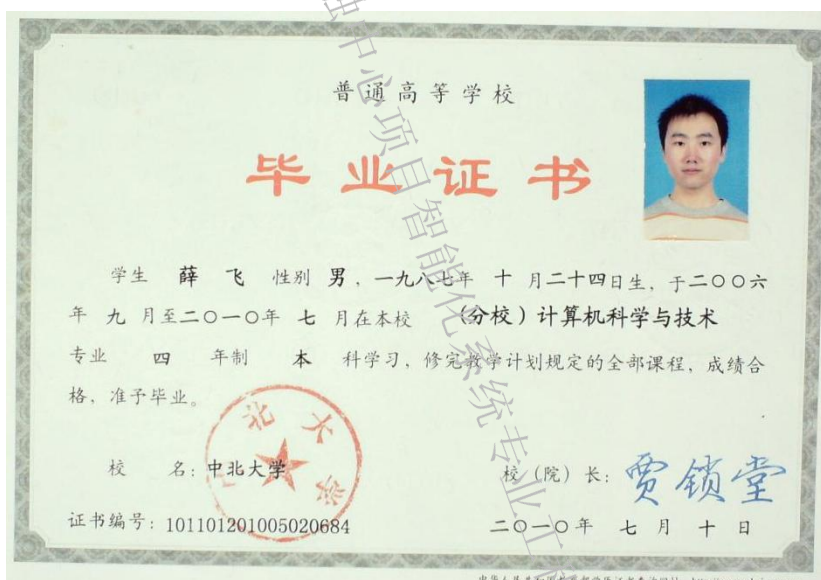 普通高等学校
毕业证书
学生 薛飞 性别 男，一九八七年 十 月二十四日生，于二〇〇六
年 九 月至二〇一〇年 七 月在本校 （分校）计算机科学与技术
专业 四 年制 本 科学习，修完教学计划规定的全部课程，成绩合
格，准予毕业。
中北大学
校 名：中北大学
校（院）长：贾锁堂
证书编号：101101201005020684
二〇一〇年 七 月 十 日
中心项目智能化系统专业工